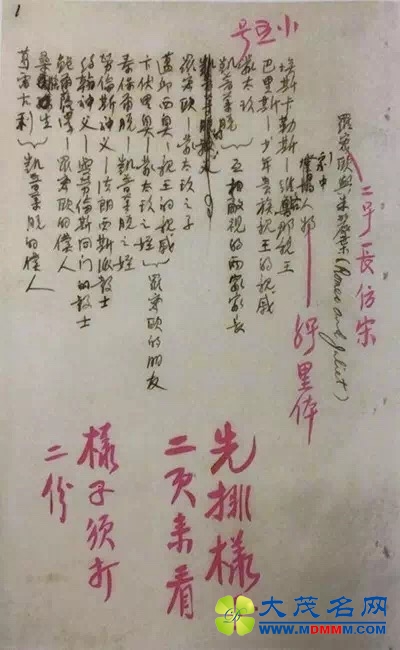 1
羅密歐與朱麗葉(Romeo and Juliet)
二号長仿宋
劇中
人物
小五号
埃斯卡勒斯——維洛那親王
巴里斯——少年貴族親王的親戚
蒙太玖
凱普萊脫
互相敵視的兩家家長
羅密歐——蒙太玖之子
邱西奥——親王的親戚
伏里奥——蒙太玖之姪
羅密歐的朋友
泰保爾脫——凱普萊脫之姪
勞倫斯神父——法朗西斯派教士
約翰神父——與勞倫斯同門的教士
鮑爾薩澤——羅密歐的僕人
葛雷古利
凱普萊脫的僕人
先排樣
二页來看
樣子須打
二份
大茂名网
WWW.MDMMM.COM